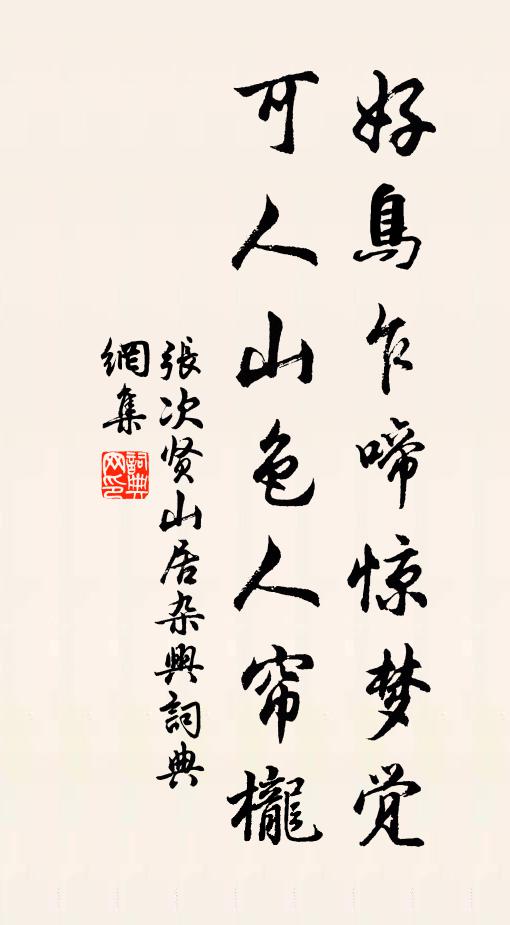 好鳥乍啼惊梦觉
可人山色人帘櫳
張次贤山居杂興詞典
網集
詞典網印